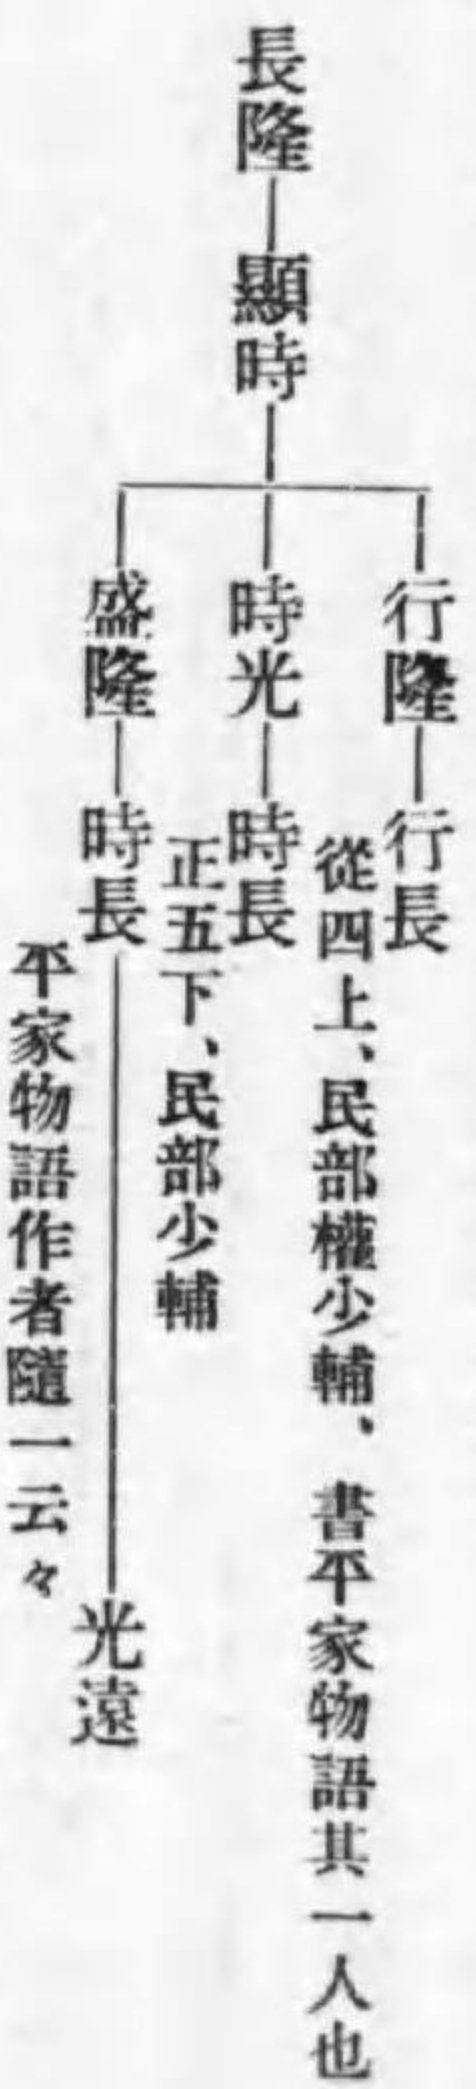 長隆―顯時
行隆―行長
從四上、民部權少輔、書平家物語其一人也
時光―時長
正五下、民部少輔
盛隆―時長―光遠
平家物語作者隨一云々